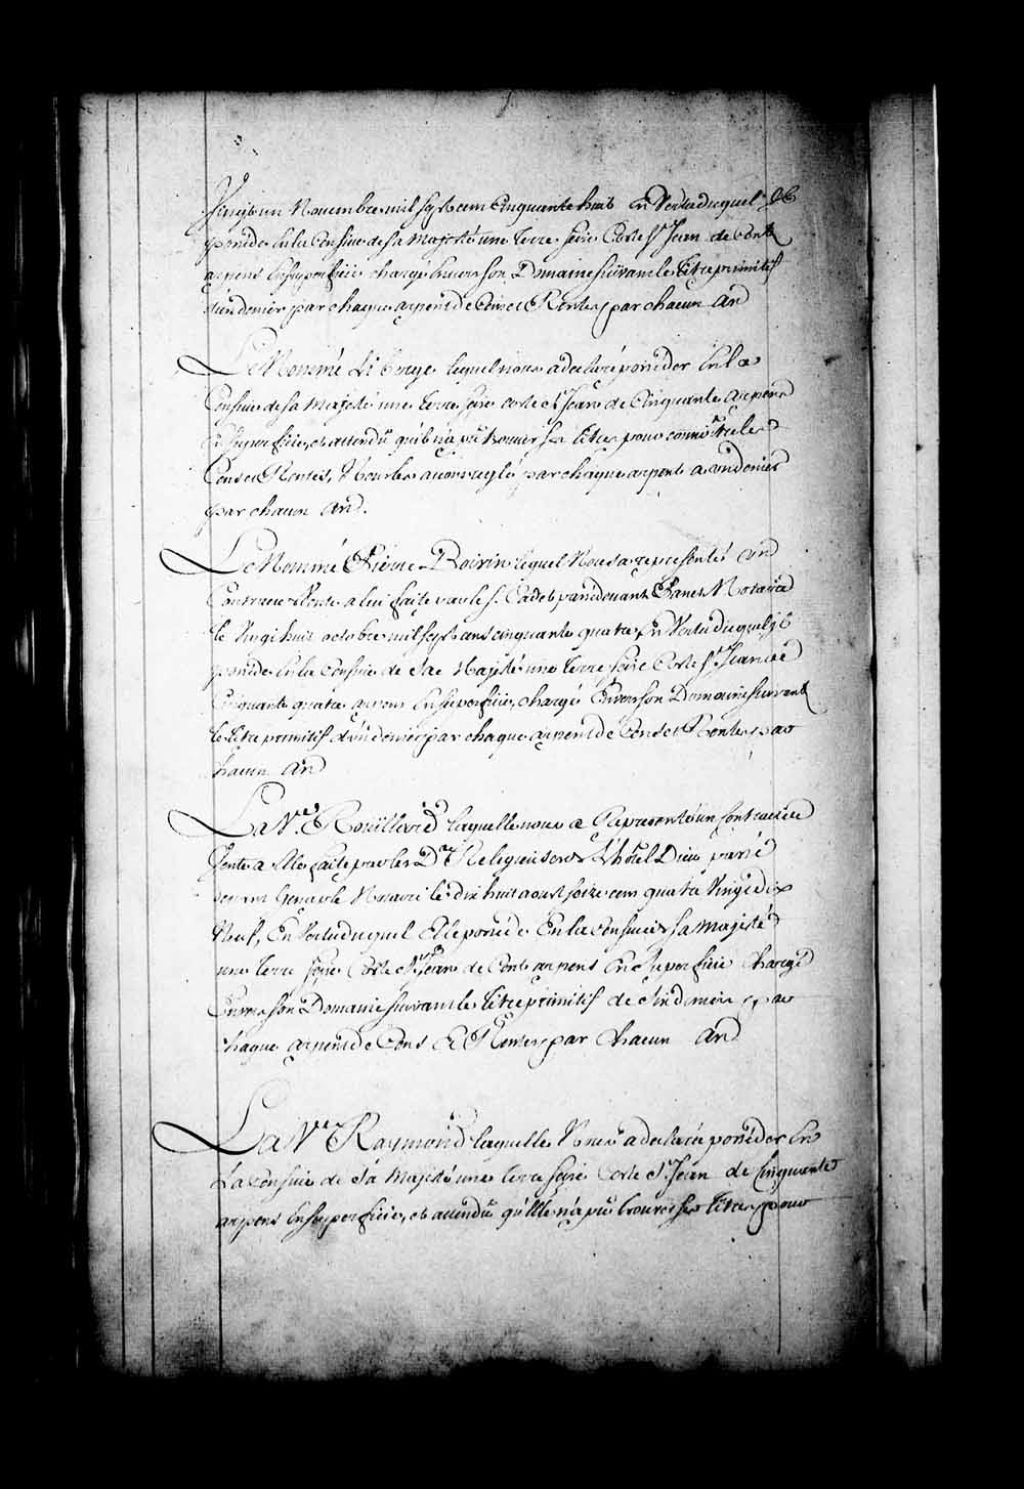 Vingt un Novembre mil sept cent Cinquante huit En Vertu duquel Il
possede En la Censive de sa Majesté une Terre sise Coste St Jean de Cent
arpens En superficie chargé Envers son Domaine suivant le Titre primitif
d'un denier par chaque arpent de Cens et Rentes par chacun An
Le Nommé laquel nous a declaré posseder En la
Censive de sa Majesté une terre sise coste St Jean de Cinquante arpens
En Superficie, et attendu qu'il n'a pû trouver ses titres pour connoitre les
Cens et Rentes, Nous les avons reglé par chaque arpent a un denier
par chacun An.
Le Nommé Pierre Boivin lequel Nous a representé un
Contract de Vente a lui faite par le S. Cadet pardevant Panet Notaire
le Vingt huit octobre mil sept cent cinquante quatre En Vertu duquel Il
possede En la Censive de Sa Majesté une terre sise Coste St Jean de
Cinquante quatre arpens En superficie, chargé Envers son Domaine suivant
le titre primitif d'un denier par chaque arpent de Cens et Rentes par
chacun An
La Ve Rouillard laquelle nous a Representé un Contract de
Vente a Elle faite par les Des Religieuses de L'hôtel Dieu passé
devant Genaple Notaire le dix huit aoust seize cent quatre Vingt dix
Neuf, En Vertu duquel Elle possede En la Censive de sa Majesté
une Terre sise Coste St Jean de Cent arpens En Superficie chargé
Envers son Domaine suivant le Titre primitif de Six deniers par
chaque arpent de Cens Et Rentes par Chacun An
La Ve Raymond laquelle Nous a declaré posseder En
La Censive de Sa Majesté une terre sise Coste St Jean de Cinquante
arpens En superficie, et attendu qu'Elle n'a pû trouver ses titres pour